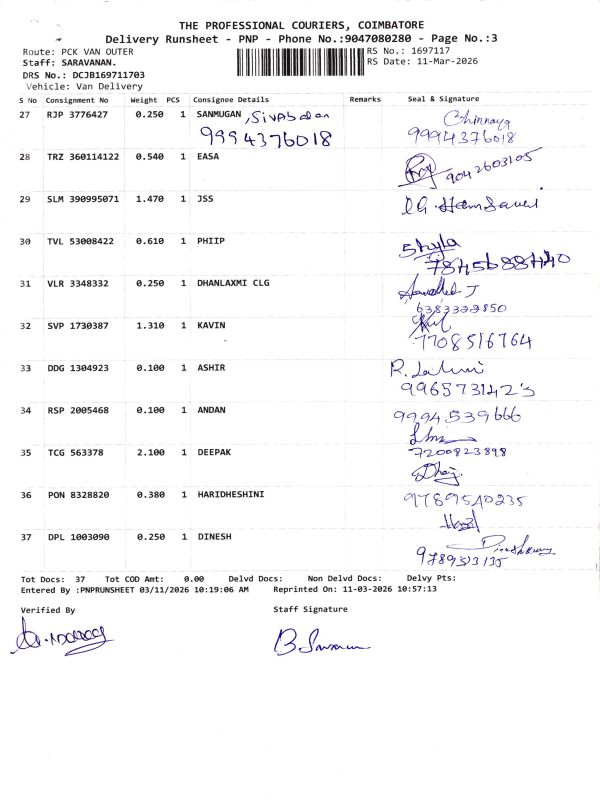 THE PROFESSIONAL COURIERS, COIMBATORE
Delivery Runsheet - PNP - Phone No.:9047080280 - Page No.:3
Route: PCK VAN OUTER
RS No.: 1697117
Staff: SARAVANAN.
RS Date: 11-Mar-2026
DRS No.: DCJB169711703
Vehicle: Van Delivery
S No Consignment No Weight PCS Consignee Details Remarks Seal & Signature
27 RJP 3776427 0.250 1 SANMUGAN, Sivabalan Chinnaya
9994376018 9994376018
28 TRZ 360114122 0.540 1 EASA 9042603105
29 SLM 390995071 1.470 1 JSS
30 TVL 53008422 0.610 1 PHIIP
31 VLR 3348332 0.250 1 DHANLAXMI CLG
6383322850
32 SVP 1730387 1.310 1 KAVIN
7708516764
33 DDG 1304923 0.100 1 ASHIR
34 RSP 2005468 0.100 1 ANDAN 9994539666
35 TCG 563378 2.100 1 DEEPAK 7200823898
36 PON 8328820 0.380 1 HARIDHESHINI 9789540235
37 DPL 1003090 0.250 1 DINESH
Tot Docs: 37 Tot COD Amt: 0.00 Delvd Docs: Non Delvd Docs: Delvy Pts:
Entered By :PNPRUNSHEET 03/11/2026 10:19:06 AM Reprinted On: 11-03-2026 10:57:13
Verified By Staff Signature